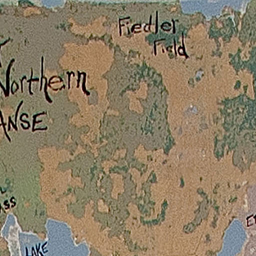 Fiedler
Field
Northern
ANSE
LAKE